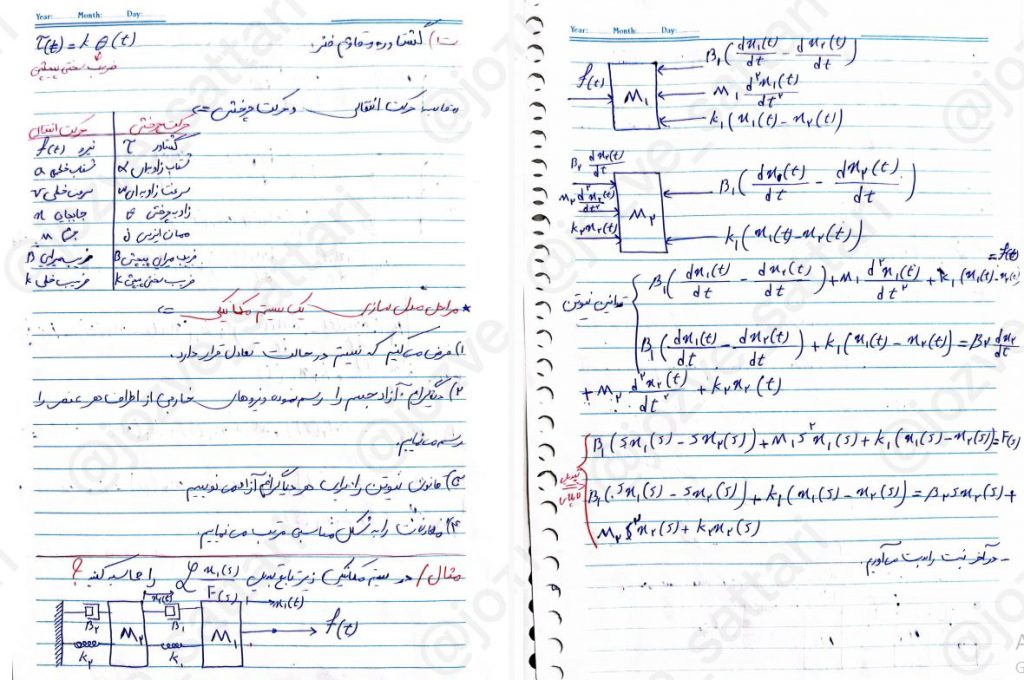 Year: Month: Day:
ت۱) گشتاور مقاوم فنر:
τ(t) = k θ(t)
ضریب سختی پیچشی
مقایسه حرکت انتقالی و حرکت چرخشی =>
حرکت انتقالی حرکت چرخشی
نیرو f(t) گشتاور τ
شتاب خطی a شتاب زاویه‌ای α
سرعت خطی v سرعت زاویه‌ای ω
جابجایی x زاویه چرخش θ
جرم M ممان اینرسی J
ضریب میرایی B ضریب میرایی پیچشی B
ضریب خطی k ضریب سختی پیچشی k
* مراحل مدل سازی یک سیستم مکانیکی =>
۱) فرض می‌کنیم که سیستم در حالت تعادل قرار دارد.
۲) دیاگرام آزاد جسم را رسم نموده و نیروهای خارجی از اطراف هر عنصر را
رسم می‌نمایم.
۳) قانون نیوتن را برای هر دیاگرام آزاد می نویسیم.
۴) معادلات را به شکل مناسبی مرتب می نمایم.
مثال / در سیستم مکانیکی زیر تابع تبدیل x₁(s)/F(s) را محاسبه کنید ؟
x₂(t) x₁(t)
B₂ M₂ B₁ M₁ f(t)
k₂ k₁
Year: Month: Day:
B₁(dx₁(t)/dt - dx₂(t)/dt)
f(t) M₁ M₁ d²x₁(t)/dt²
k₁(x₁(t) - x₂(t))
B₂ dx₂(t)/dt
M₂ d²x₂(t)/dt² M₂ B₁(dx₁(t)/dt - dx₂(t)/dt)
k₂x₂(t) k₁(x₁(t) - x₂(t))
قوانین نیوتن
B₁(dx₁(t)/dt - dx₂(t)/dt) + M₁ d²x₁(t)/dt² + k₁(x₁(t) - x₂(t)) = f(t)
B₁(dx₁(t)/dt - dx₂(t)/dt) + k₁(x₁(t) - x₂(t)) = B₂ dx₂/dt
+ M₂ d²x₂(t)/dt² + k₂x₂(t)
تبدیل لاپلاس
B₁(sx₁(s) - sx₂(s)) + M₁s²x₁(s) + k₁(x₁(s) - x₂(s)) = F(s)
B₁(sx₁(s) - sx₂(s)) + k₁(x₁(s) - x₂(s)) = B₂sx₂(s) +
M₂s²x₂(s) + k₂x₂(s)
- در آخر نسبت را بدست می‌آوریم.
@jozve_sattari